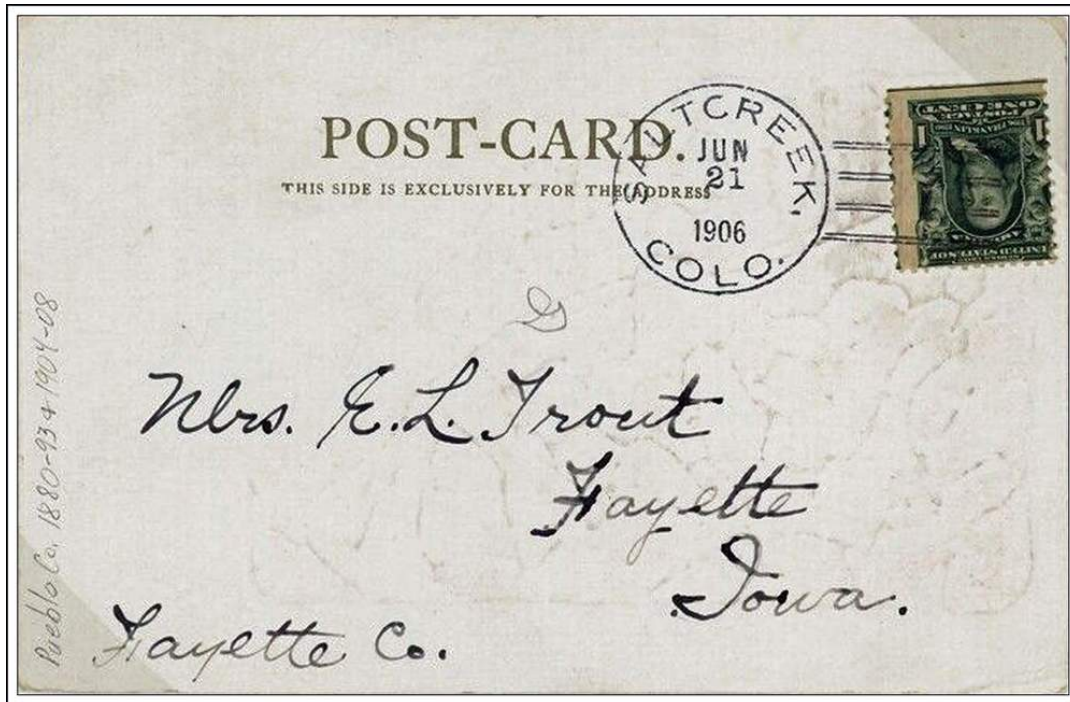 POST-CARD.
THIS SIDE IS EXCLUSIVELY FOR THE ADDRESS
SALTCREEK,
JUN
21
1906
COLO.
1
ONE CENT
1
UNITED STATES OF
Mrs. E. L. Trout
Fayette
Iowa.
Fayette Co.
Pueblo Co. 1880-93+1904-08